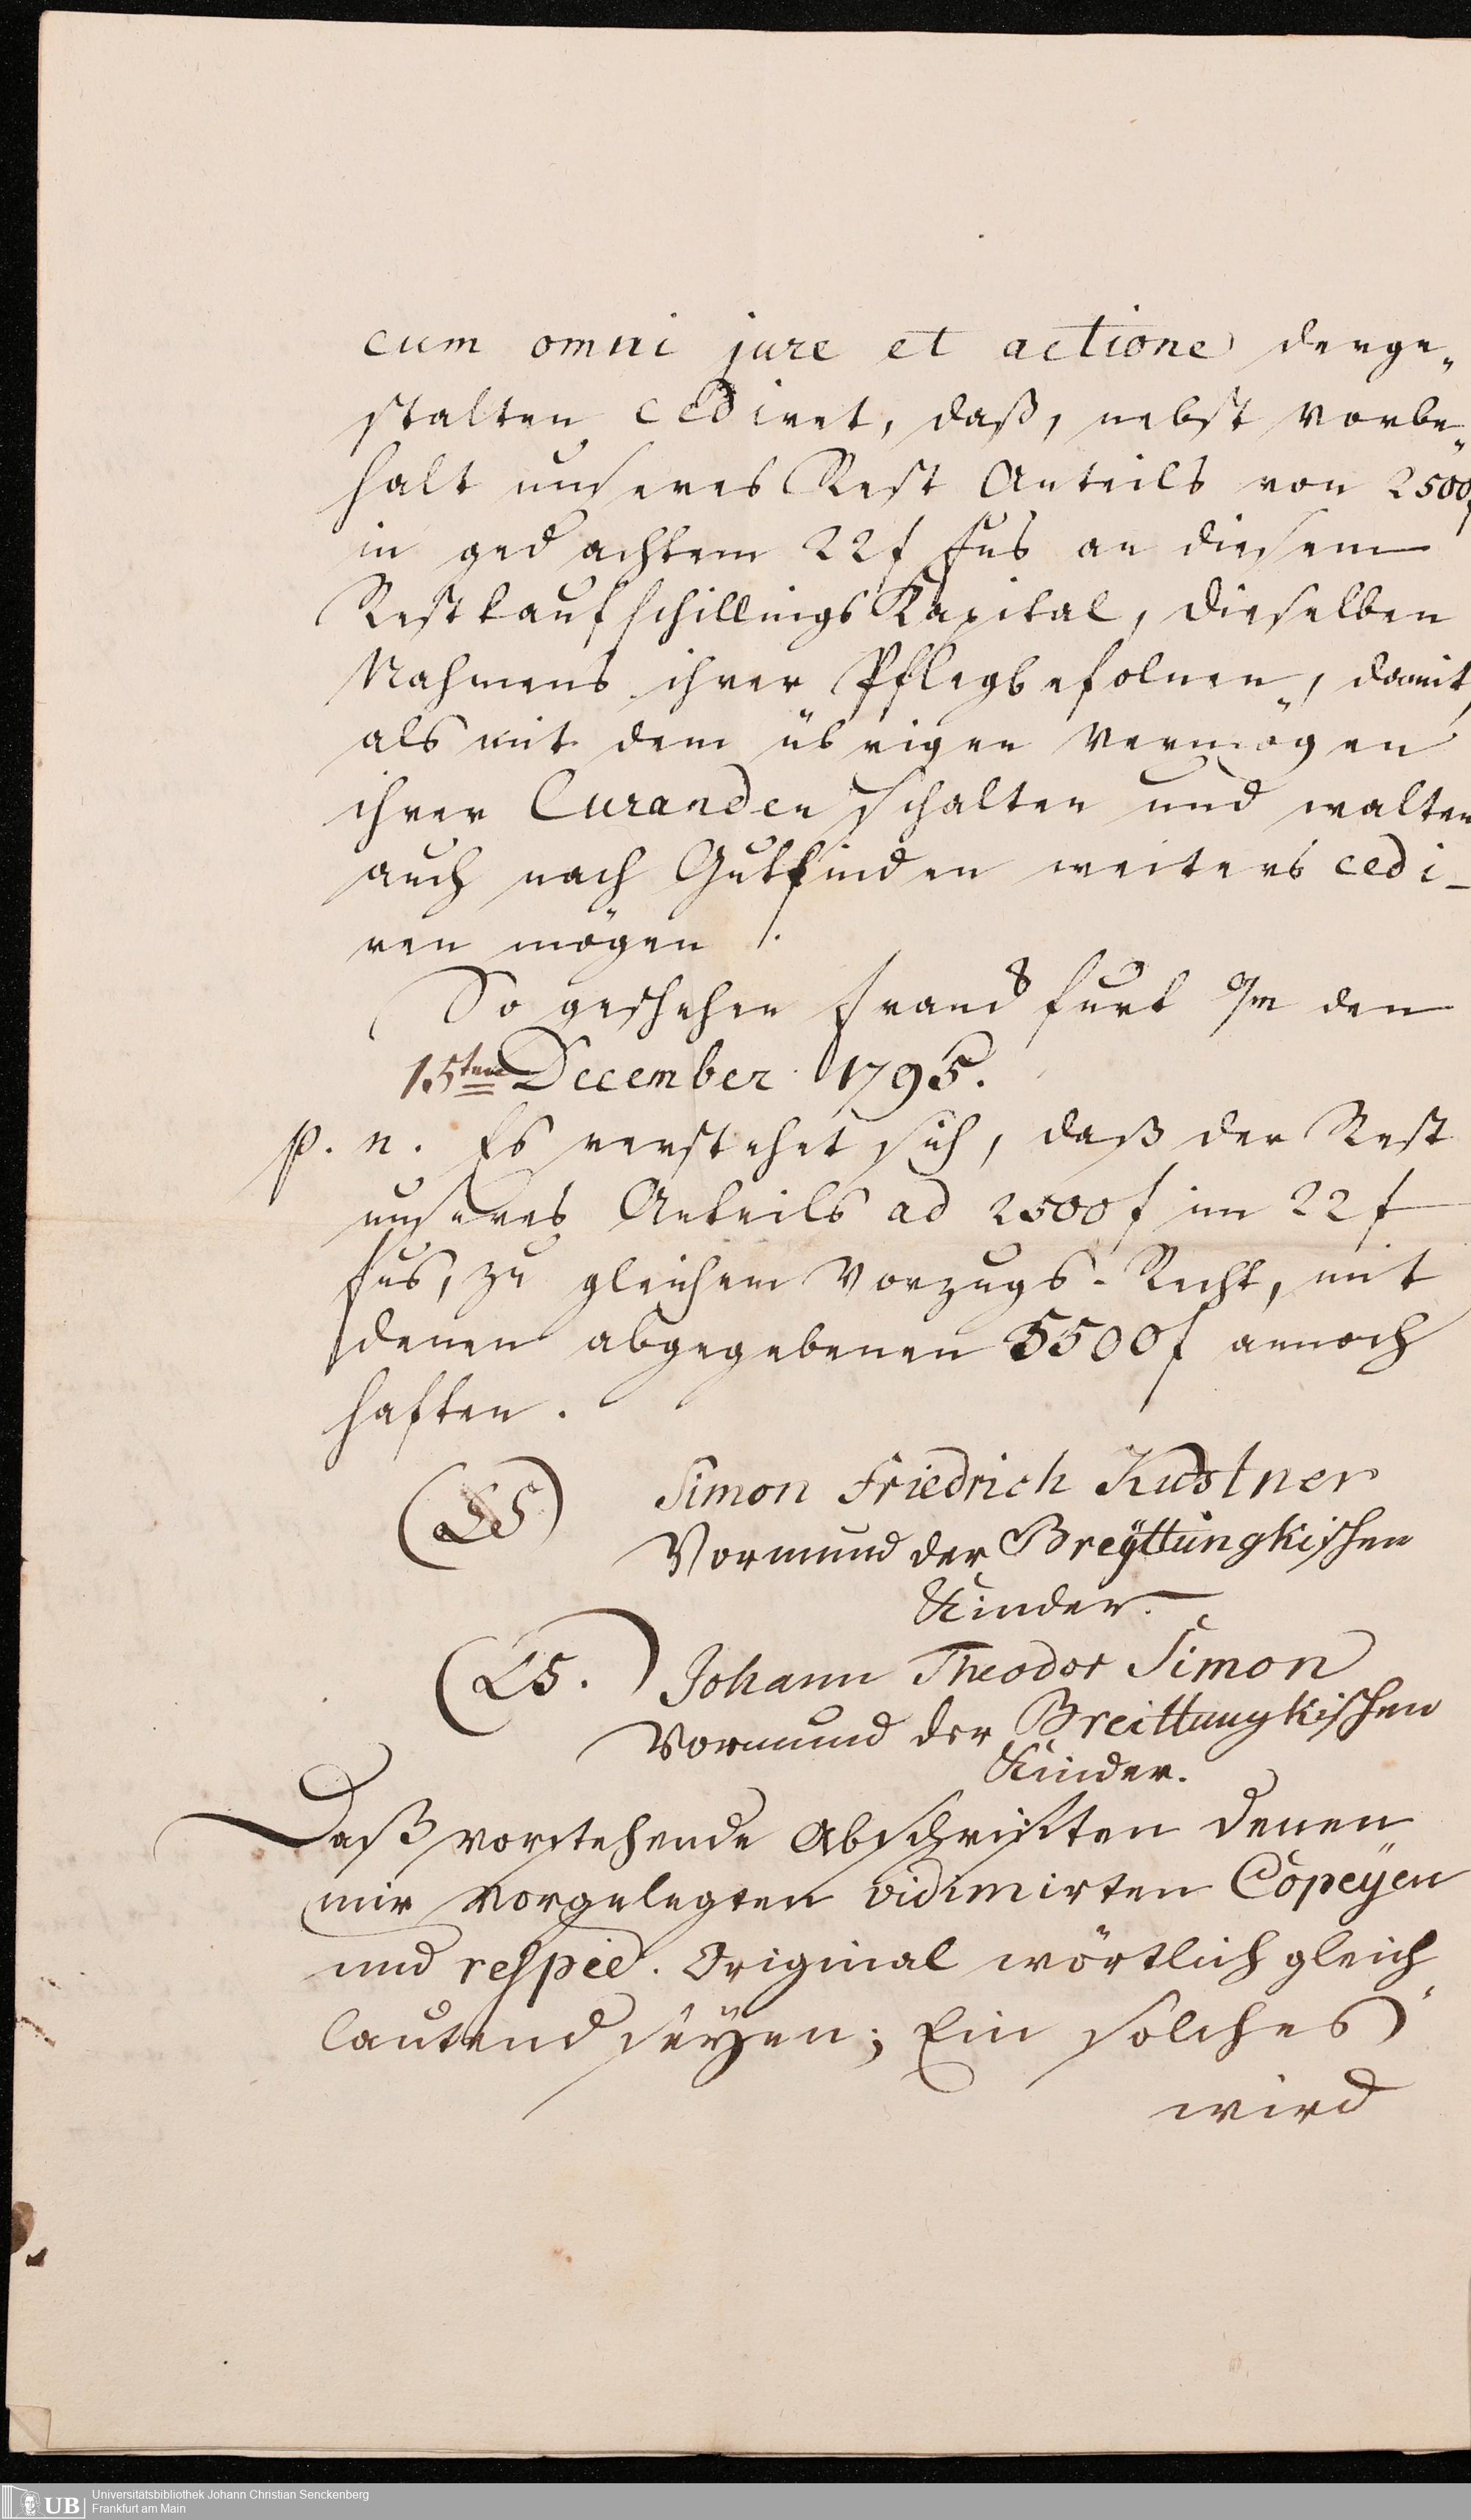 cum omni jure et actione derge„
stalten cediret, daß, nebst vorbe„
halt unseres Rest Anteils von 2500f
in gedachtem 22f Fus an diesem
Restkaufschillings Kapital, dieselben
Nahmens ihrer Pflegbefolnen, damit,
als mit dem übrigen Vermögen
ihrer Curanden schalten und walten
auch nach Gutfinden weiters cedi-
ren mögen /.
So geschehen Franckfurt a/m den
15ten December 1795.
p. n. Es verstehet sich, daß der Rest
unseres Anteils ad 2500f im 22f
Fus, zu gleichem Vorzugs-Recht, mit
denen abgegebenen 5500f annoch
haften.
(LS) Simon Friedrich Küstner
Vormund der Breÿttungkischen
Kinder.
(LS.) Johann Theodor Simon
Vormund der Breittungkischen
Kinder.
Daß vorstehende Abschriften denen
mir vorgelegten vidimirten Copeÿen
und respec. Original wörtlich gleich
lautend seÿen; Ein solches
wird
UB Universitätsbibliothek Johann Christian Senckenberg
Frankfurt am Main